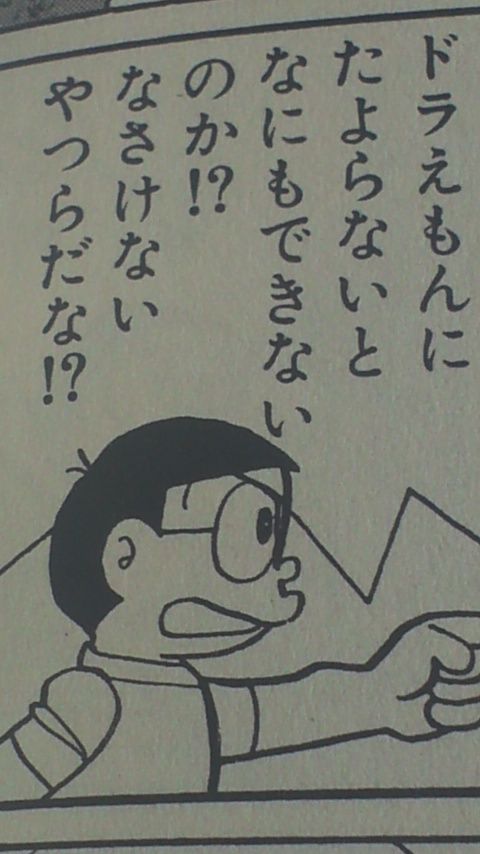 ドラえもんに
たよらないと
なにもできない
のか!?
なさけない
やつらだな!?